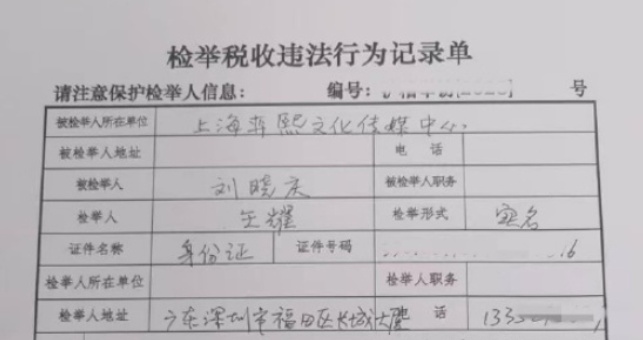 检举税收违法行为记录单
请注意保护检举人信息： 编号： 号
被检举人所在单位 上海弈熙文化传媒中心
被检举人地址 电 话
被检举人 刘晓庆 被检举人职务
检举人 王耀 检举形式 实名
证件名称 身份证 证件号码 16
检举人所在单位 检举人职务
检举人地址 广东深圳市福田区长城大厦 电 话 133